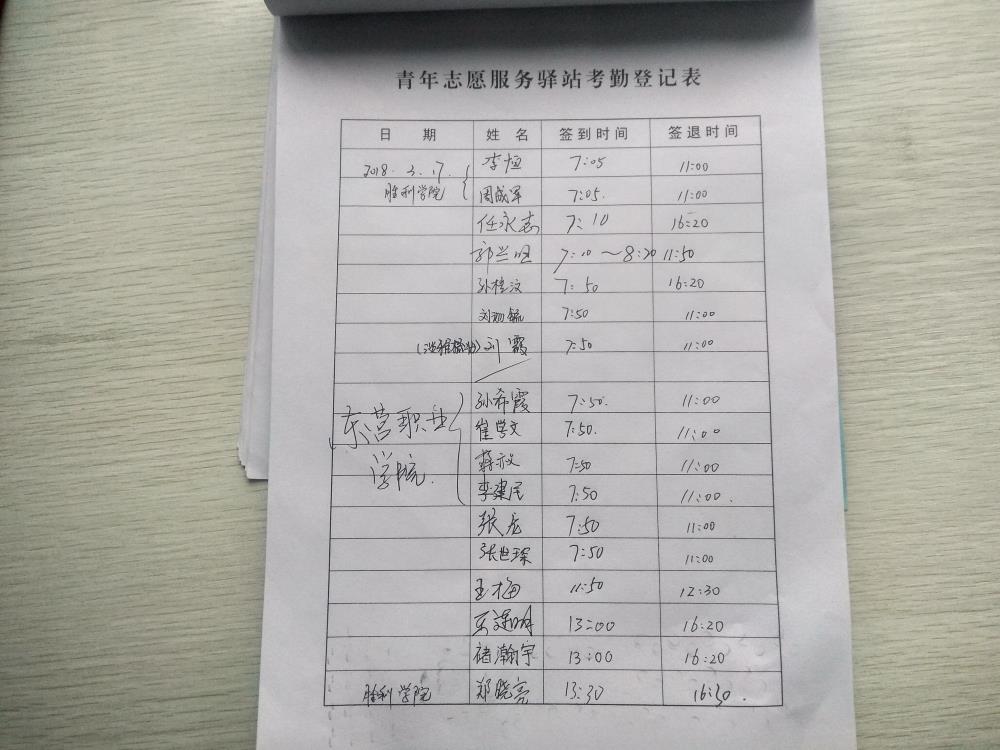 青年志愿服务驿站考勤登记表
日 期 姓 名 签到时间 签退时间
2018.3.17. 李恒 7:05 11:00
胜利学院 周成军 7:05. 11:00
任永志 7:10 16:20
郭兰 7:10～8:20 11:50
孙桂汶 7:50 16:20
刘 7:50 11:00
刘霞 7:50 11:00
孙希霞 7:50. 11:00
东营职业 崔学文 7:50. 11:00
学院. 蒋 7:50 11:00
李建民 7:50 11:00.
张龙 7:50 11:00
张世琛 7:50 11:00
王梅 11:50 12:30
明 13:00 16:20
褚瀚宇 13:00 16:20
胜利学院 郑晓亮 13:30 16:30.